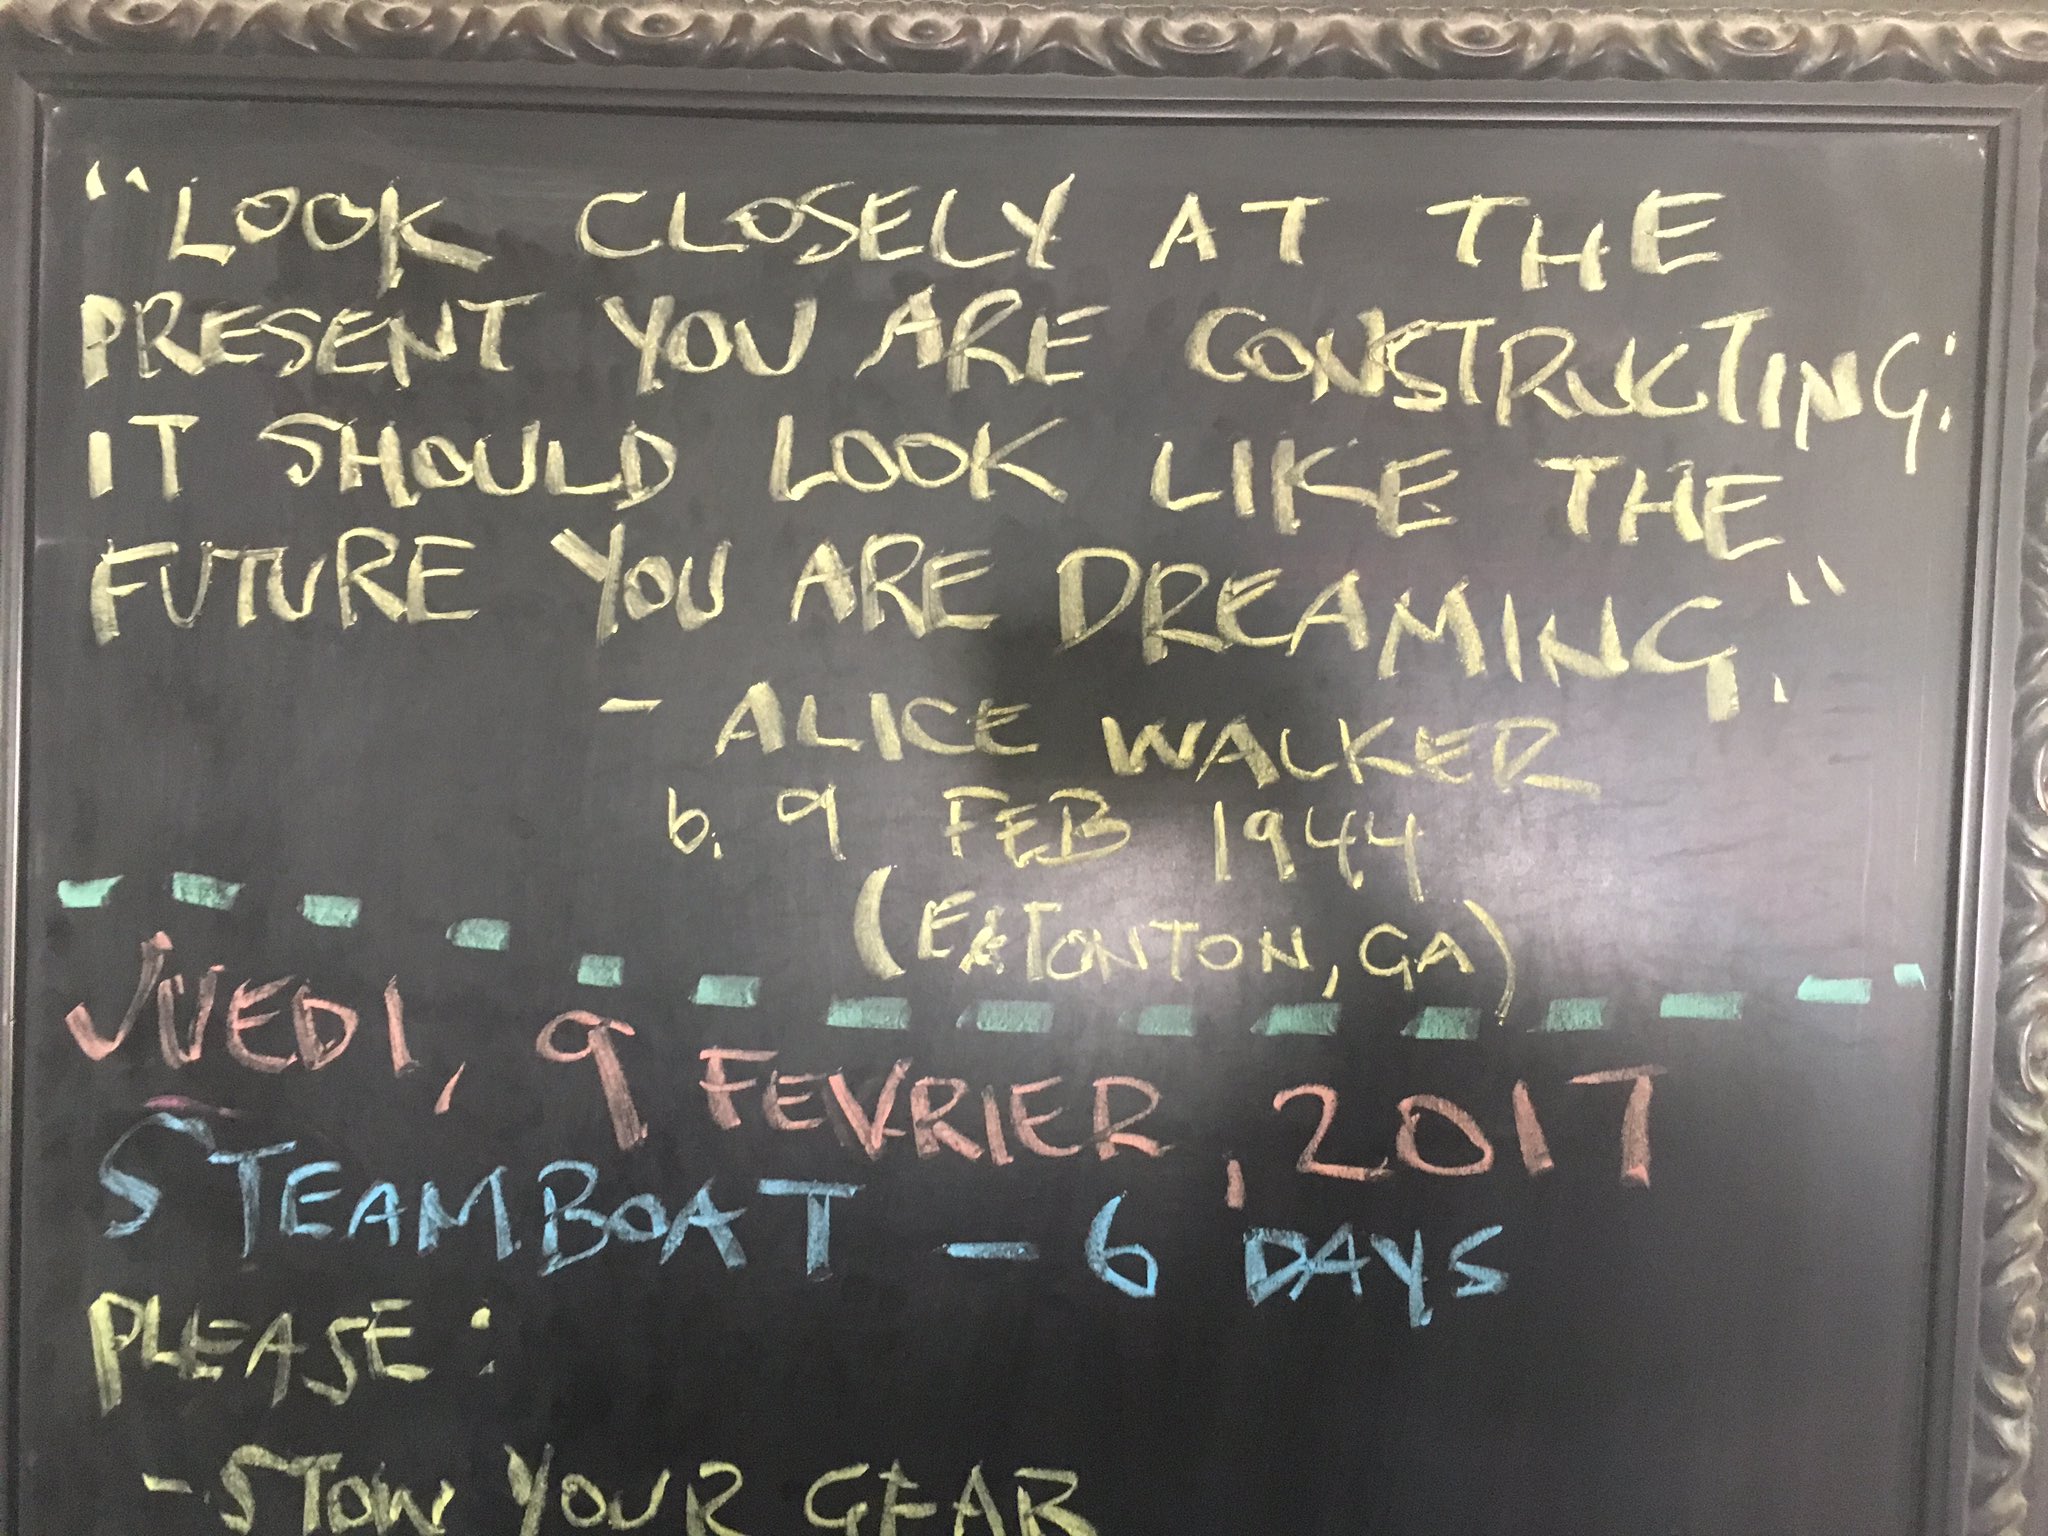 "LOOK CLOSELY AT THE
PRESENT YOU ARE CONSTRUCTING:
IT SHOULD LOOK LIKE THE
FUTURE YOU ARE DREAMING."
- ALICE WALKER
b. 9 FEB 1944
(EATONTON, GA)
JUEDI, 9 FEVRIER, 2017
STEAMBOAT - 6 DAYS
PLEASE:
- STOW YOUR GEAR